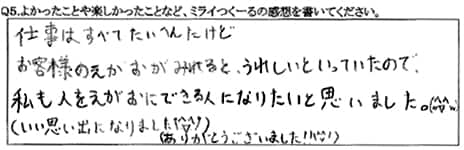 Q5.よかったことや楽しかったことなど、ミライつくーるの感想を書いてください。
仕事はすべてたいへんだけど
お客様のえがおがみれると、うれしいといっていたので、
私も人をえがおにできる人になりたいと思いました。
(いい思い出になりました(^^)
(ありがとうございました!!(^^)